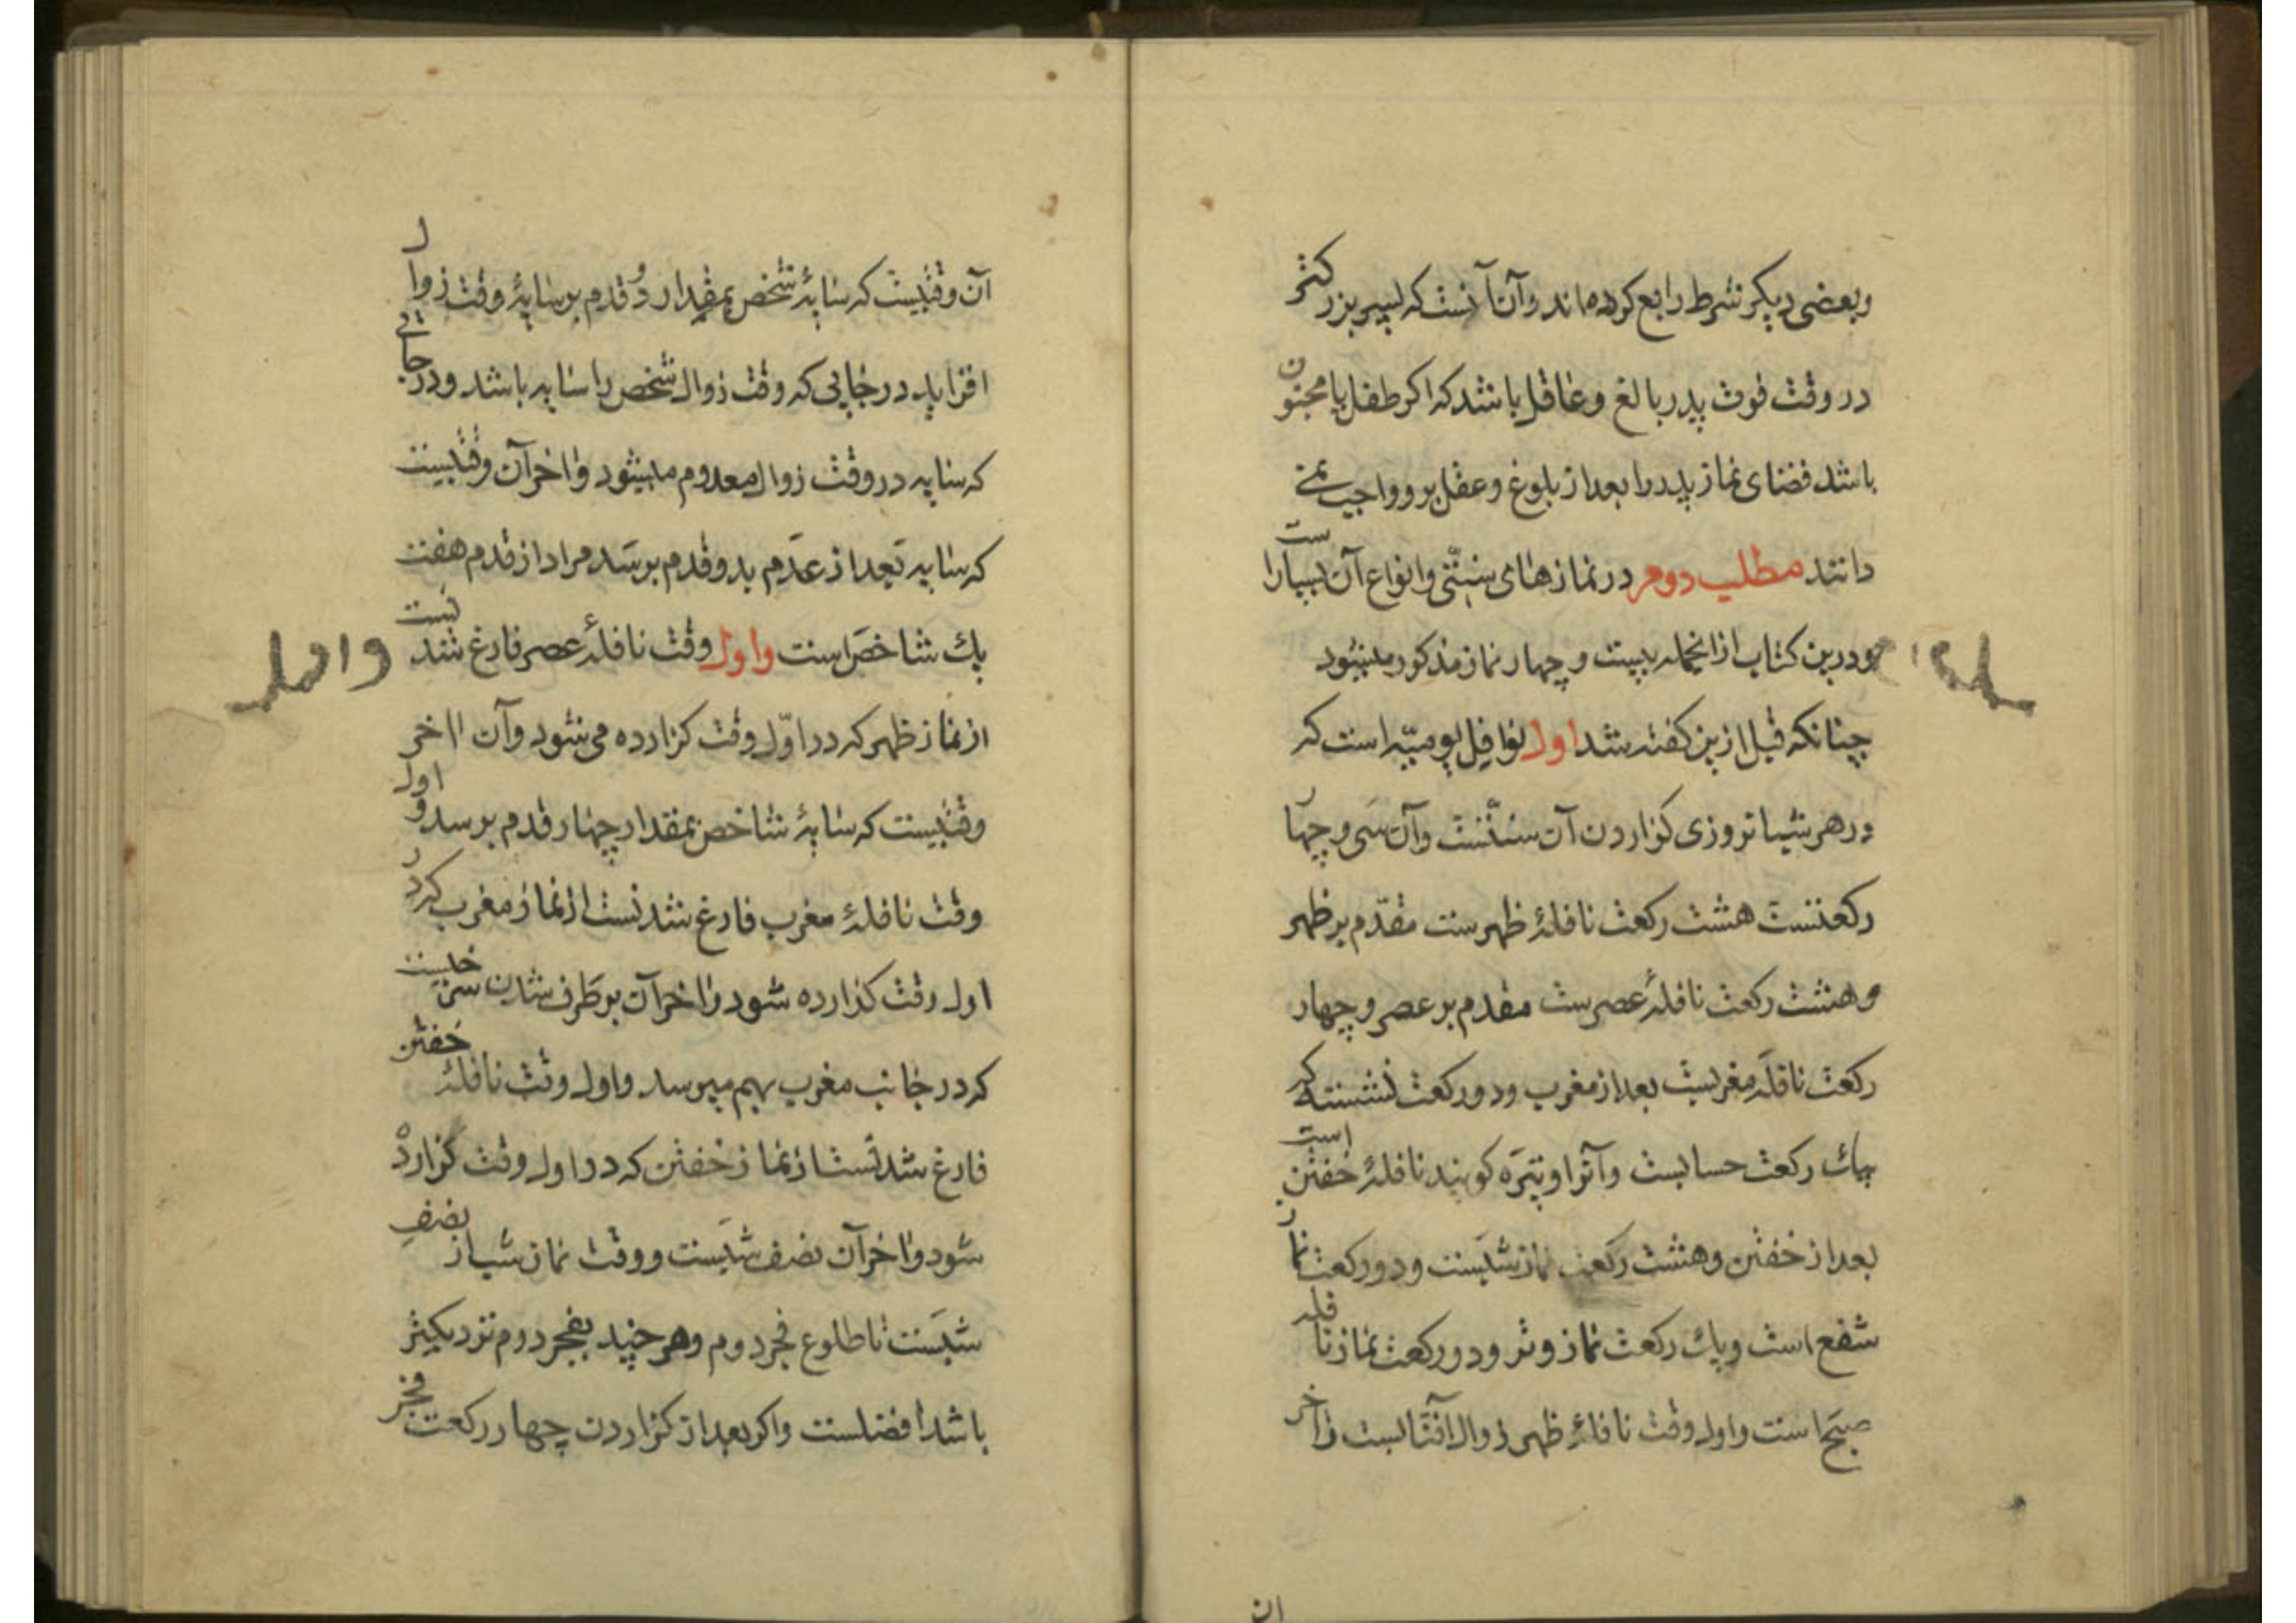 وبعضی دیکر شرط رابع کرده‌اند وآن آنست که پسر بزرکتر
در وقت فوت پدر بالغ وعاقل باشد که اکر طفل یا مجنون
باشد قضای نماز پدر را بعد از بلوغ وعقل برو واجب نمی
دانند مطلب دوم در نمازهای سنتی وانواع آن بسیار است
ودرین کتاب از انجمله بیست وچهار نماز مذکور میشود
چنانکه قبل ازین کفته شد اول نوافل یومیّه است که
در هر شبانروزی کزاردن آن سنّتست وآن سی وچهار
رکعتست هشت رکعت نافلهٔ ظهرست مقدّم بر ظهر
وهشت رکعت نافلهٔ عصرست مقدم بر عصر وچهار
رکعت نافلهٔ مغربست بعد از مغرب ودو رکعت نشسته که
بیك رکعت حسابست وآنرا وتیره کویند نافلهٔ خفتن است
بعد از خفتن وهشت رکعت نماز شبست ودو رکعت نماز
شفع است ویك رکعت نماز وتر ودو رکعت نماز نافله
صبح است واول وقت نافلهٔ ظهر زوال آفتابست واخر
آن وقتیست که سایهٔ شخص بمقدار دو قدم بر سایهٔ وقت زوال
افزاید در جایی که وقت زوال شخص را سایه باشد ودر جائی
که سایه در وقت زوال معدوم میشود واخر آن وقتیست
که سایه بعد از عدم بدو قدم برسد مراد از قدم هفت
یك شاخص است واول وقت نافلهٔ عصر فارغ شدنست
از نماز ظهر که در اوّل وقت کزارده می شود وآن ااخر
وقتیست که سایهٔ شاخص بمقدار چهار قدم برسد واول
وقت نافلهٔ مغرب فارغ شدنست از نماز مغرب که در
اول وقت کذارده شود واخر آن بر طرف شدن سرخیست
که در جانب مغرب بهم میرسد واول وقت نافلهٔ خفتن
فارغ شدنست از نماز خفتن که در اول وقت کزارده
شود واخر آن نصف شبست ووقت نماز شب از نصف
شبست تا طلوع فجر دوم وهر چند بفجر دوم نزدیکتر
باشد افضلست واکر بعد از کزاردن چهار رکعت فجر